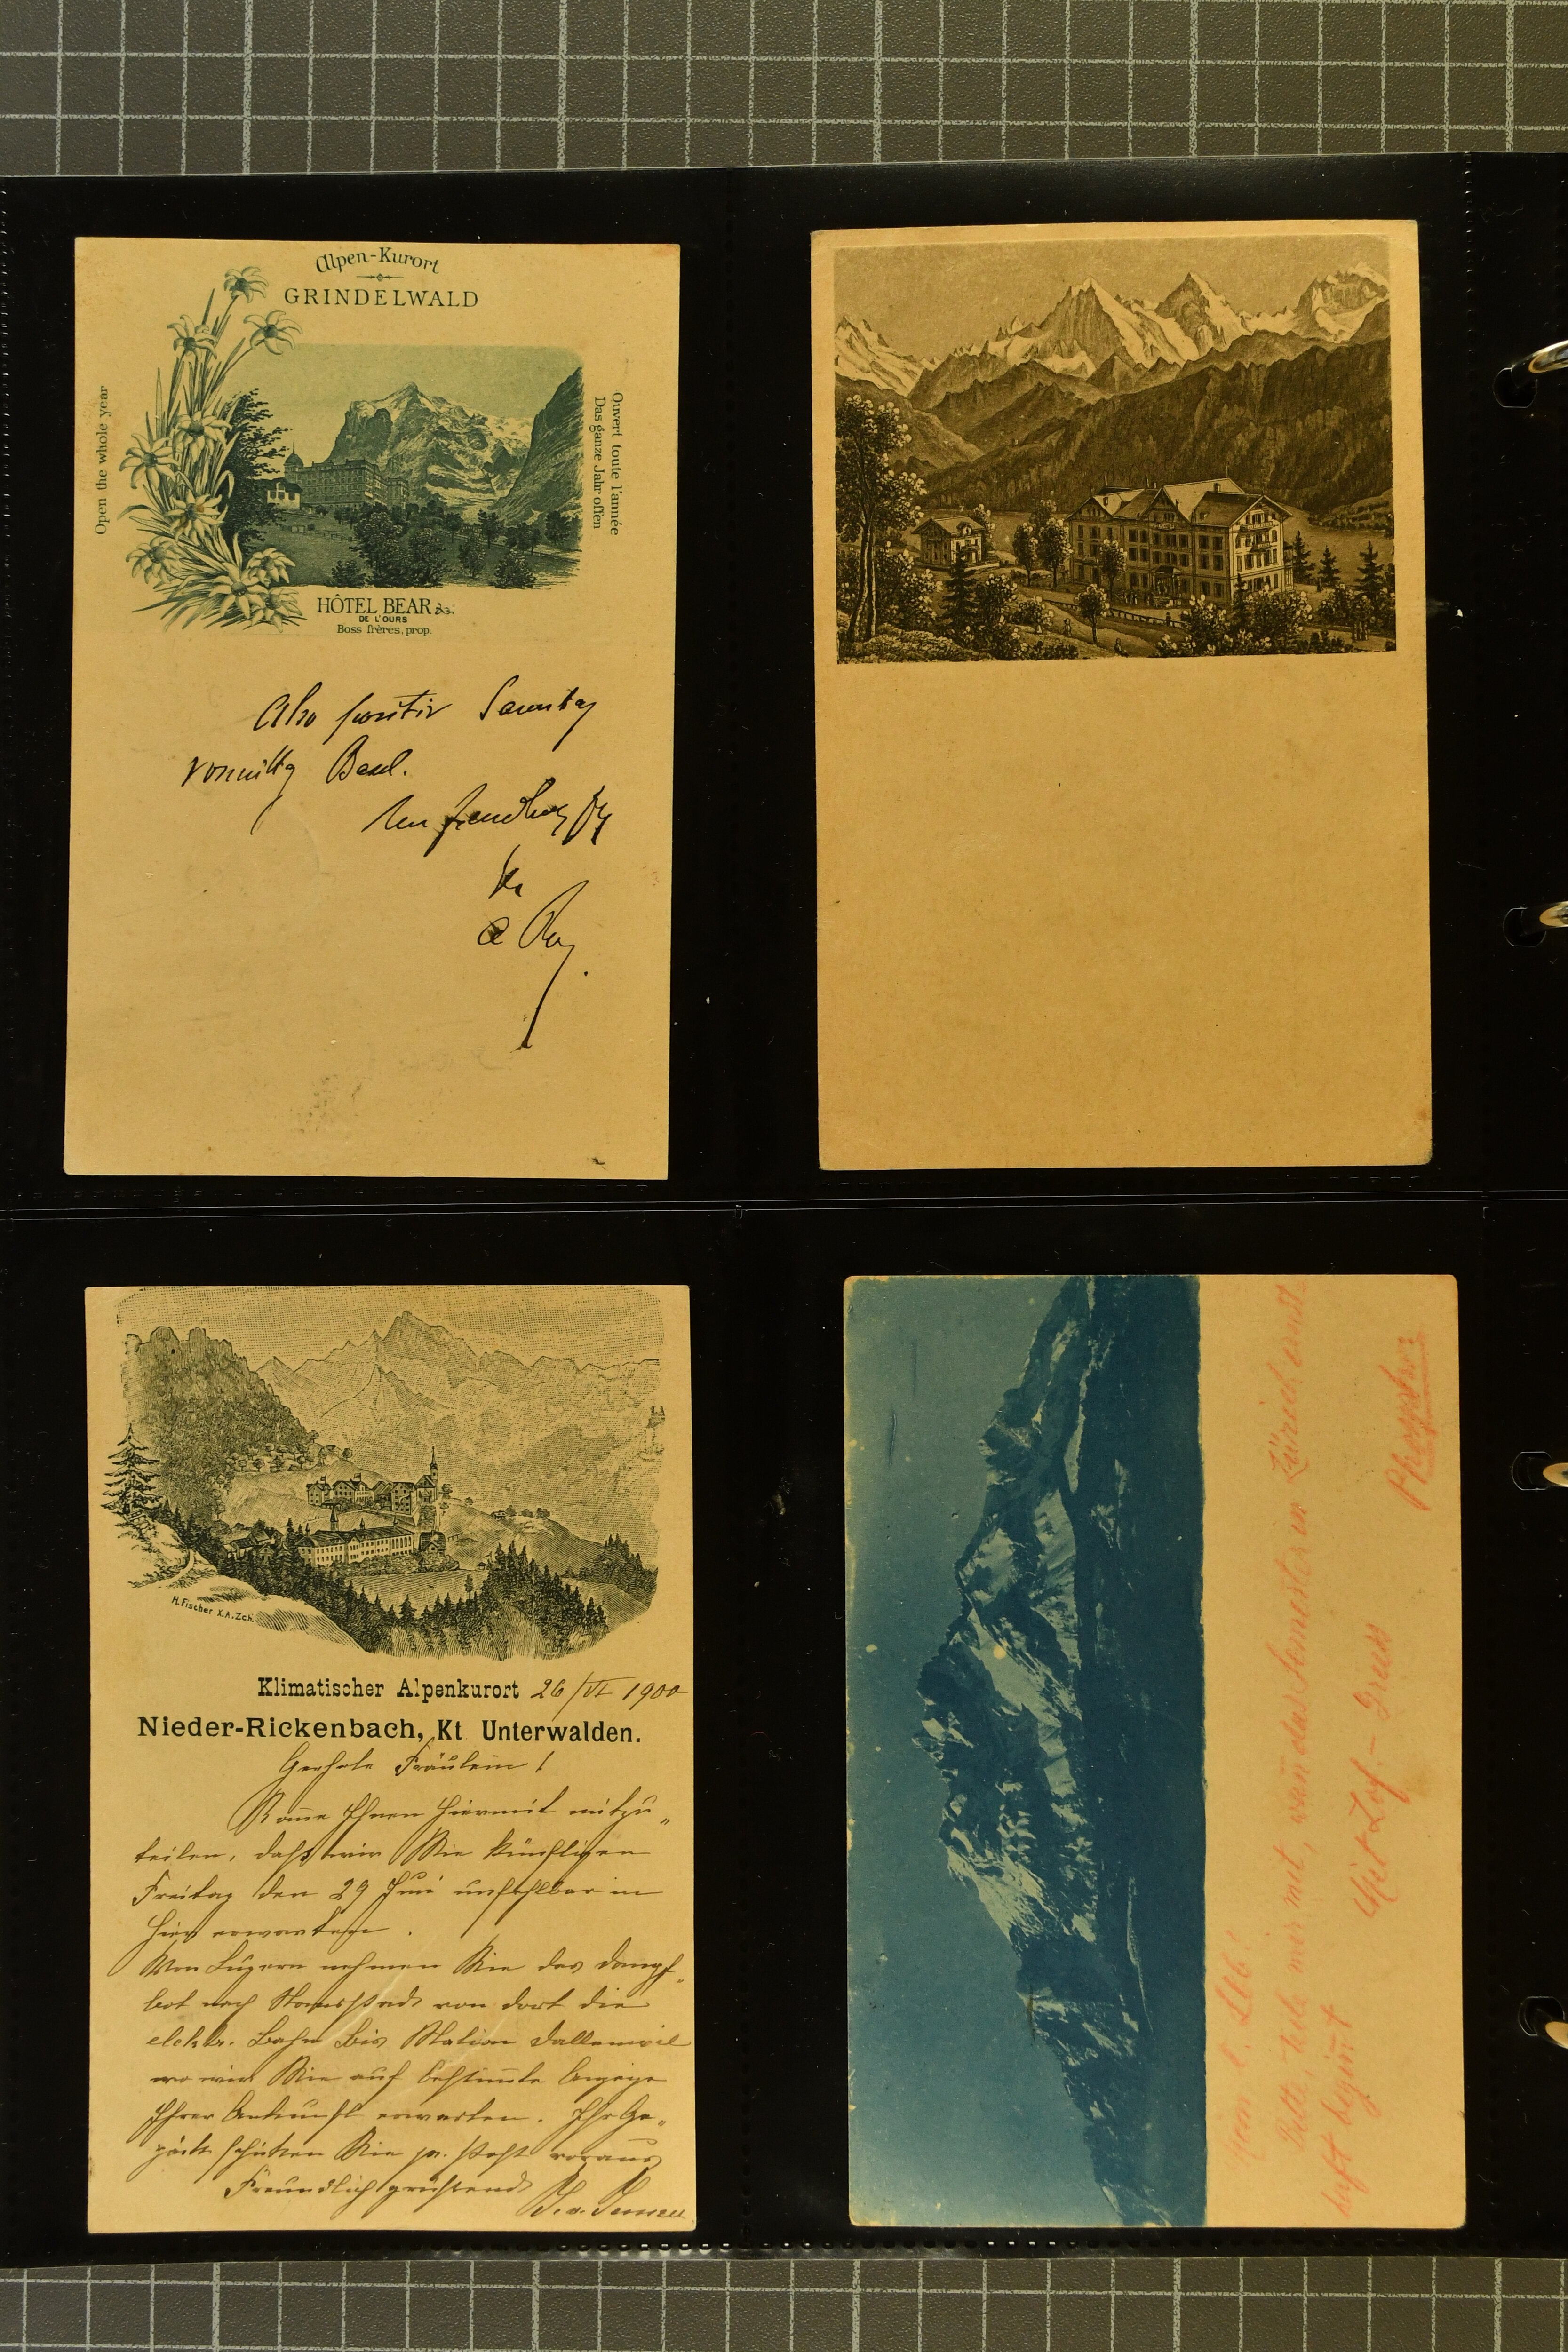 Alpen-Kurort
GRINDELWALD
Open the whole year
Ouvert toute l'année
Das ganze Jahr offen
HÔTEL BEAR
DE L'OURS
Boss frères, prop.
Also positiv Samstag
vormittg Basel.
H. Fischer X.A. Zch.
Klimatischer Alpenkurort 26/VI 1900
Nieder-Rickenbach, Kt Unterwalden.
Geehrte Fräulein!
Komme Ihnen hiermit mitzu-
teilen, daß wir Sie künftigen
Freitag den 29 Juni unfehlbar in
hier erwarten.
Von Luzern nehmen Sie das Dampf-
bot nach Stansstad von dort die
elektr. Bahn bis Station Dallenwil
wo wir Sie auf bestimmte Anzeige
Ihrer Ankunft erwarten. Ihr Ge-
päck schicken Sie pr. Post voraus
Freundlich grüssend
Bitte, teile mir mit, wañ das Semester in Zürich ernst-
haft begiñt
Mit Zof.-Gruss